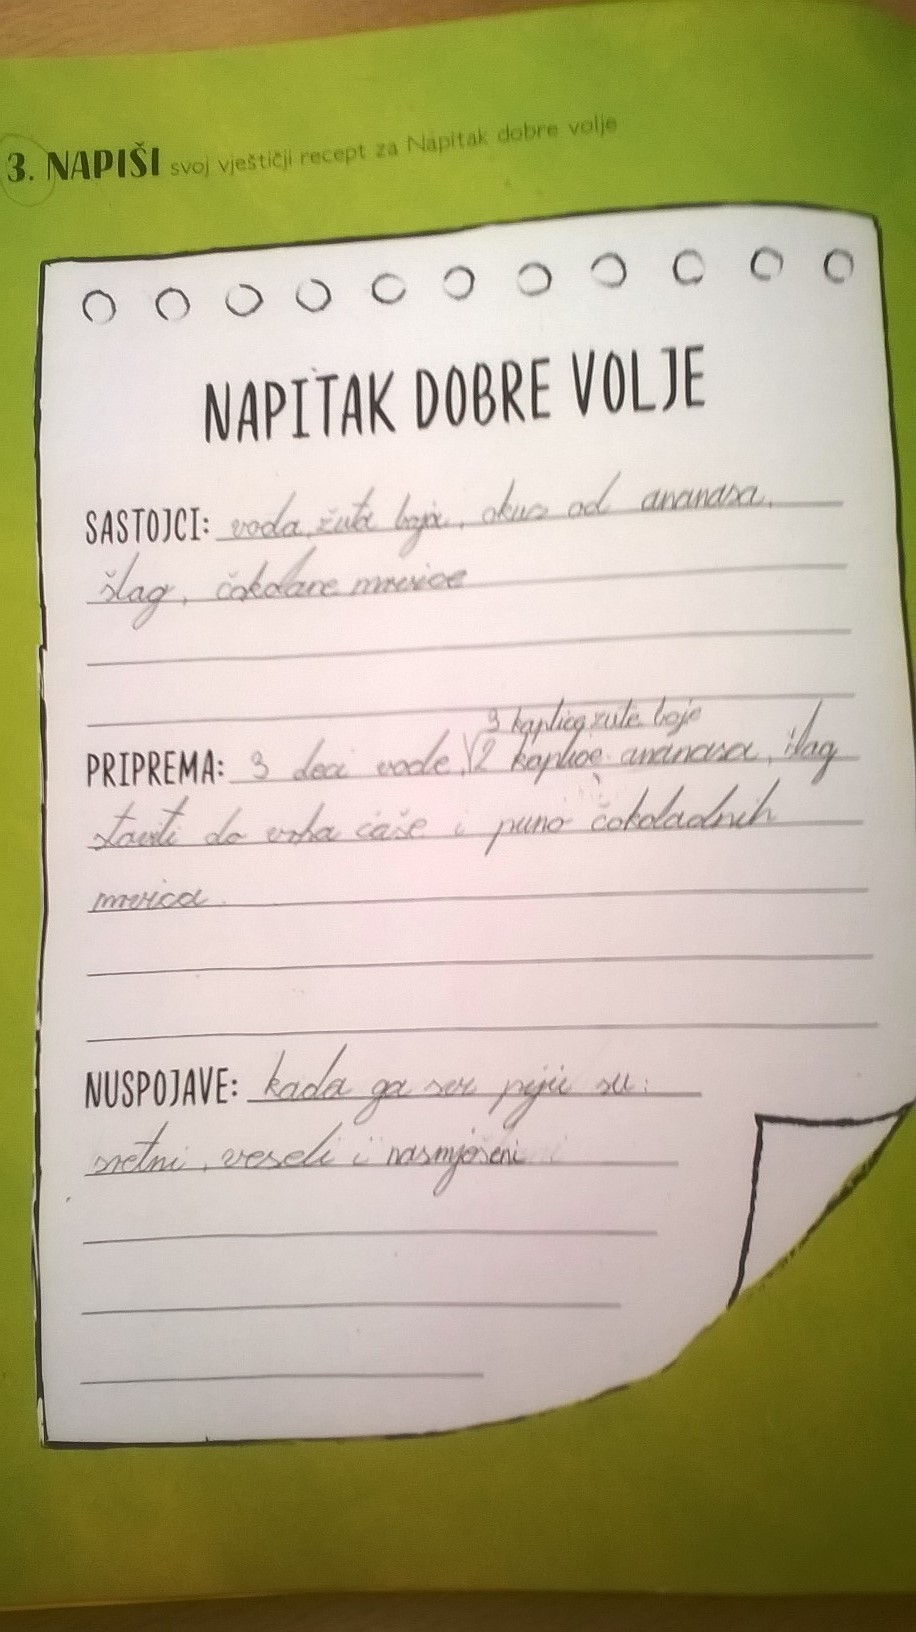 3. NAPIŠI svoj vještičji recept za Napitak dobre volje
NAPITAK DOBRE VOLJE
SASTOJCI: voda, žuta boja, okus od ananasa,
šlag, čokolane mrvice
3 kapljice žute boje
PRIPREMA: 3 deci vode, √2 kapljice ananasa, šlag
staviti do vrha čaše i puno čokoladnih
mrvica.
NUSPOJAVE: kada ga svi piju su:
sretni, veseli i nasmješeni